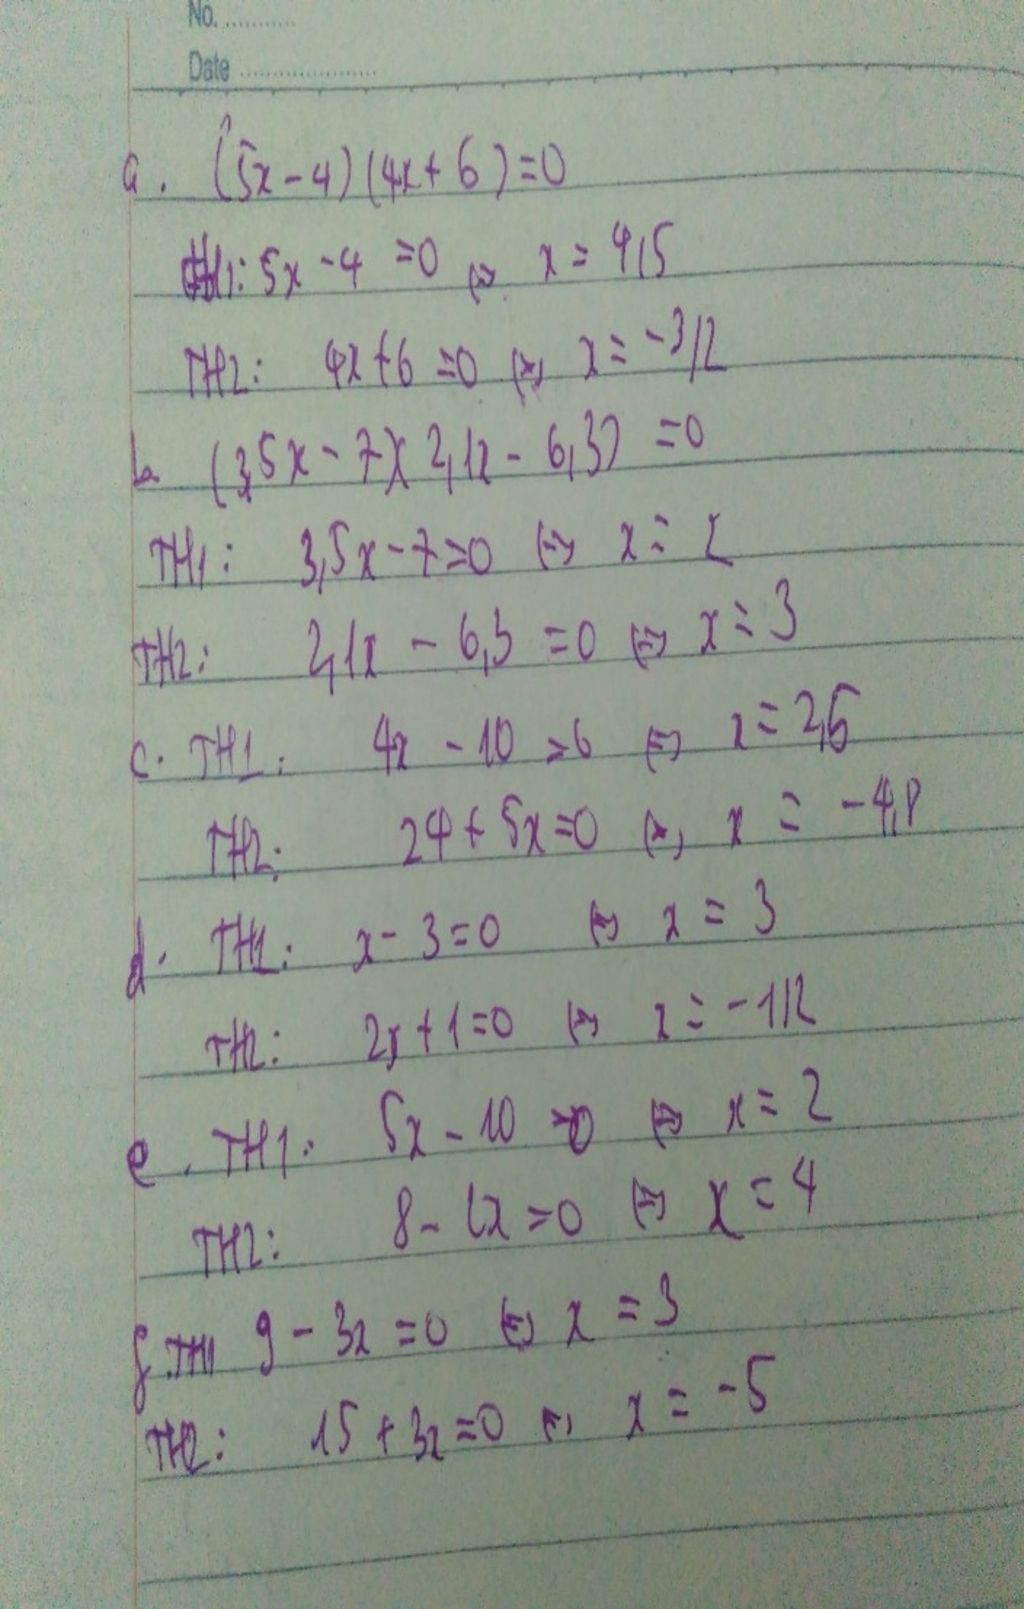 No. ............
Date ......................
a. (5x - 4)(4x + 6) = 0
TH1: 5x - 4 = 0 ⇔ x = 4/5
TH2: 4x + 6 = 0 ⇔ x = -3/2
b (3,5x - 7)(2,1x - 6,3) = 0
TH1: 3,5x - 7 = 0 ⇔ x = 2
TH2: 2,1x - 6,3 = 0 ⇔ x = 3
c. TH1: 4x - 10 = 0 ⇔ x = 2,5
TH2: 24 + 5x = 0 ⇔ x = -4,8
d. TH1: x - 3 = 0 ⇔ x = 3
TH2: 2x + 1 = 0 ⇔ x = -1/2
e. TH1: 5x - 10 = 0 ⇔ x = 2
TH2: 8 - 2x = 0 ⇔ x = 4
f. TH1 9 - 3x = 0 ⇔ x = 3
TH2: 15 + 3x = 0 ⇔ x = -5